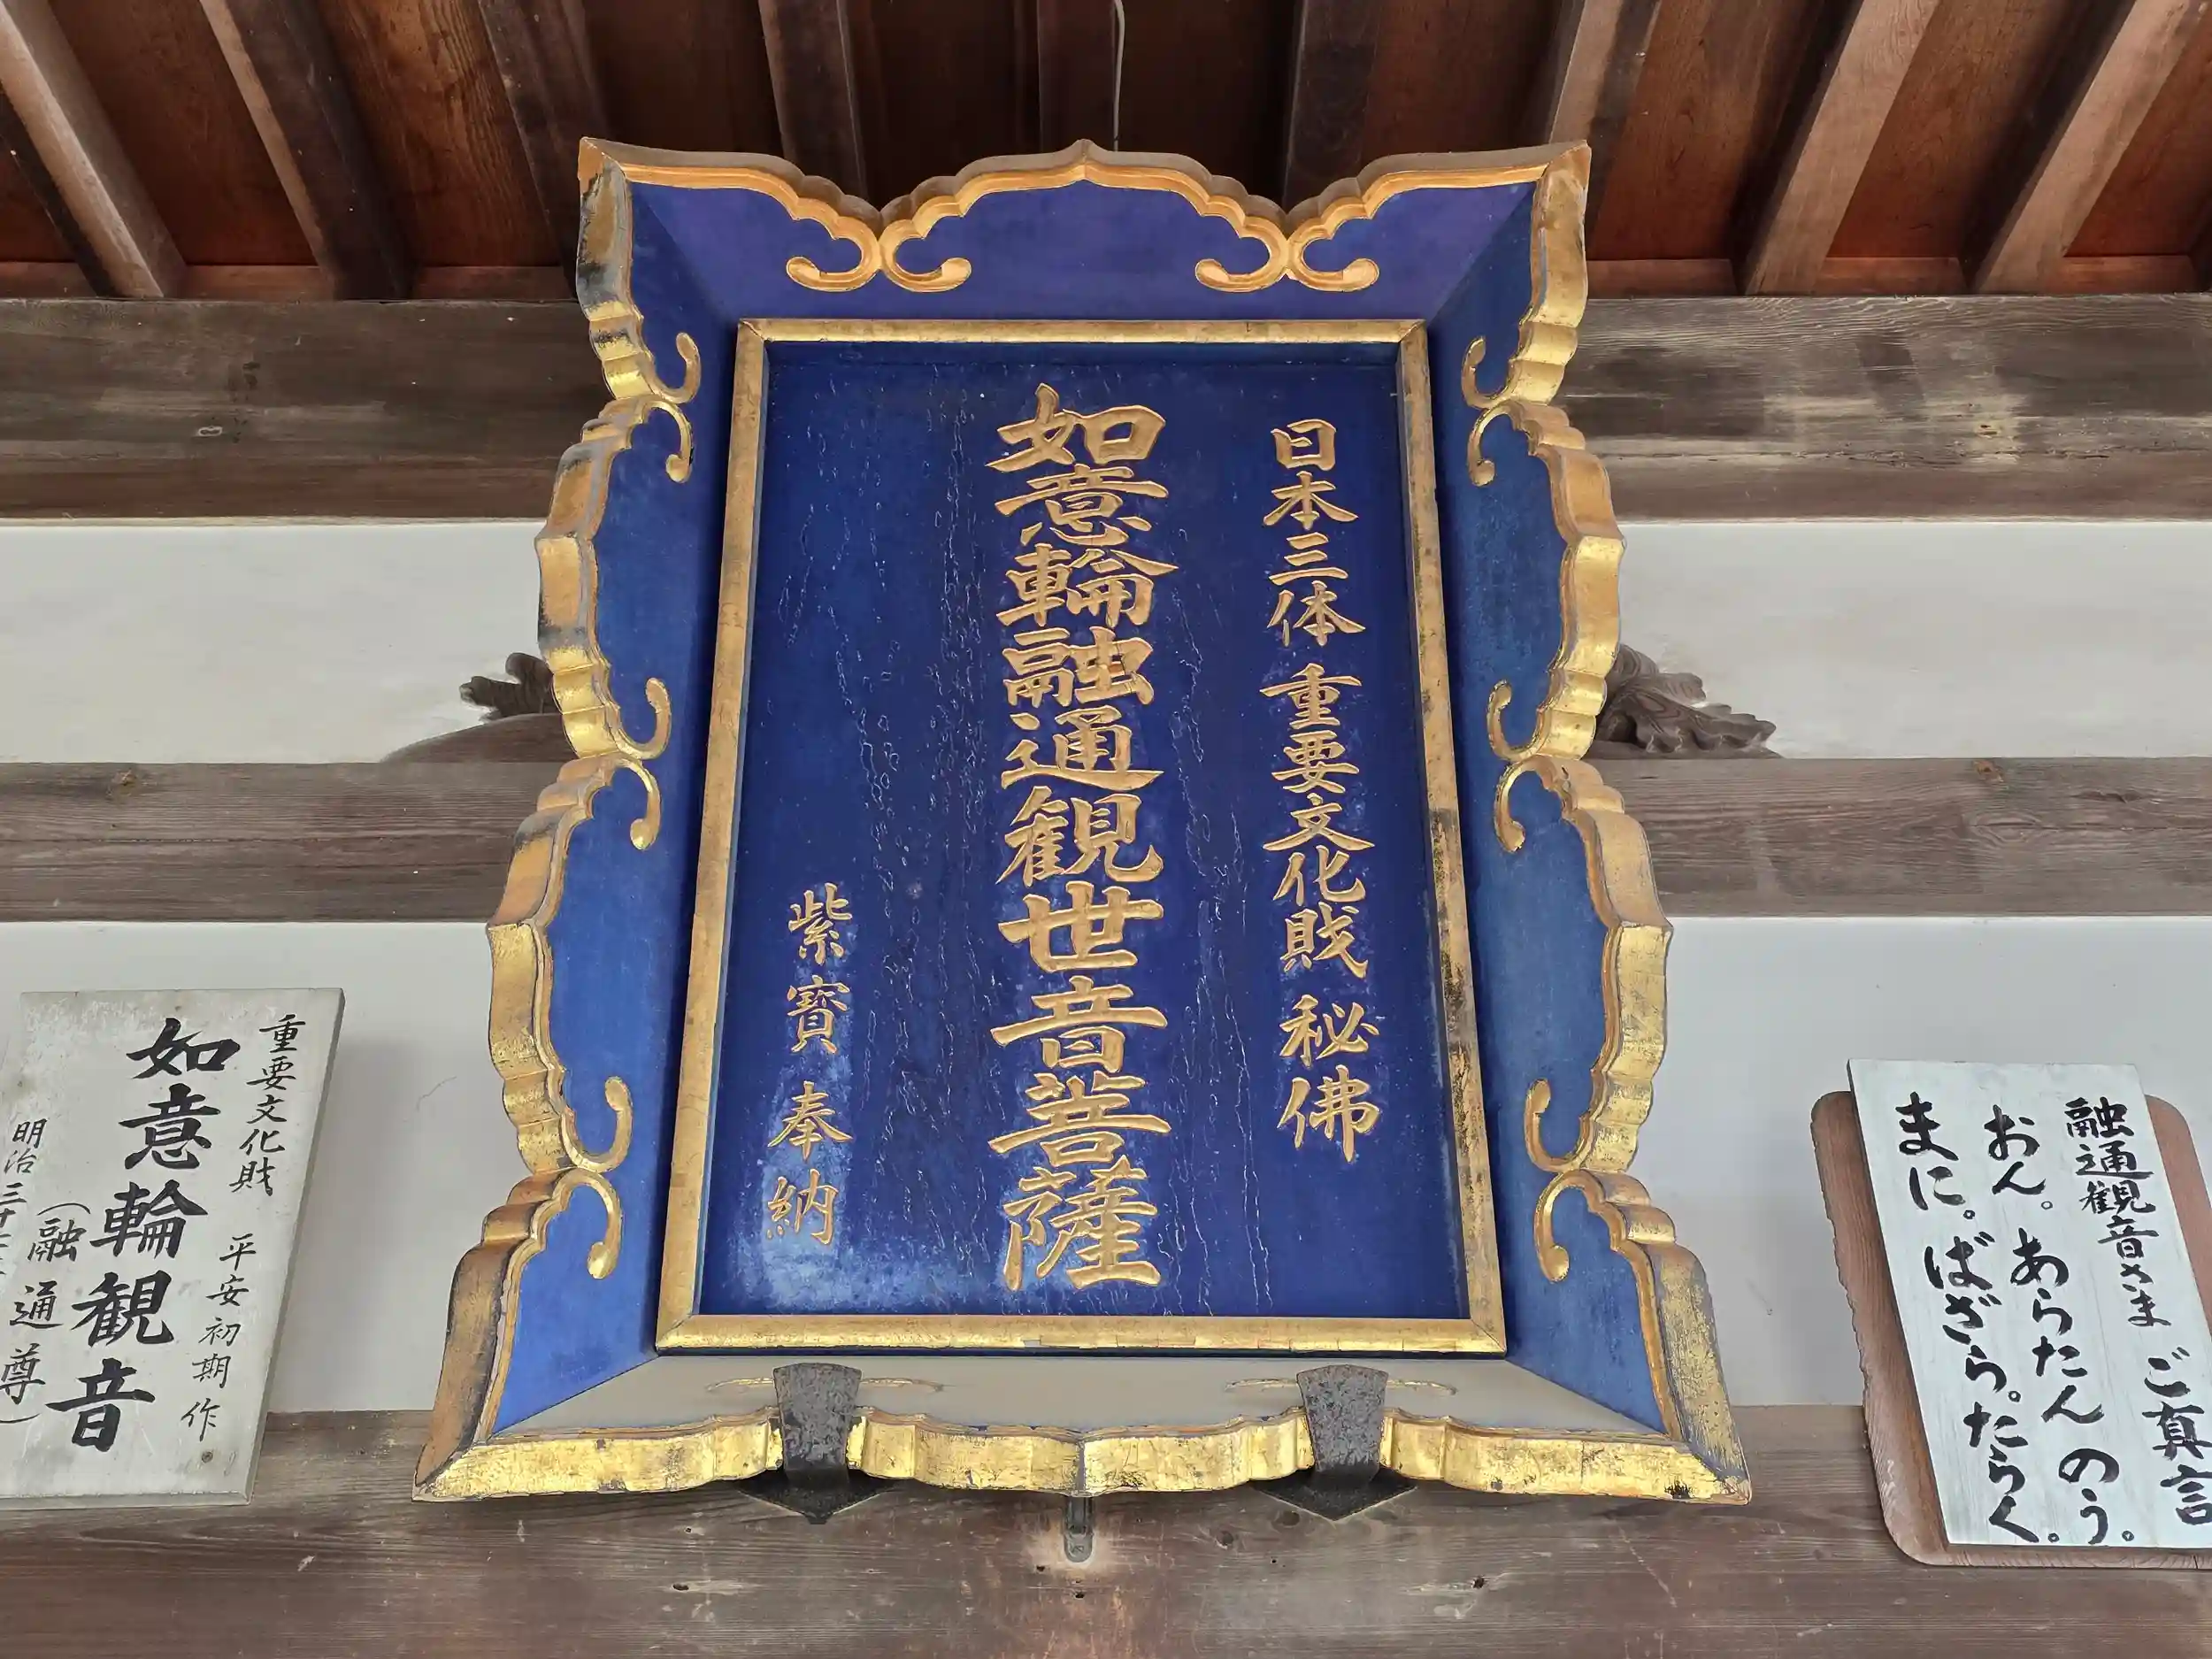 日本三体 重要文化財 秘佛
如意輪融通観世音菩薩
紫寳奉納
融通観音さま ご真言
おん。あらたんのう。
まに。ばざら。たらく。
重要文化財 平安初期作
如意輪観音
(融通尊)
明治三十